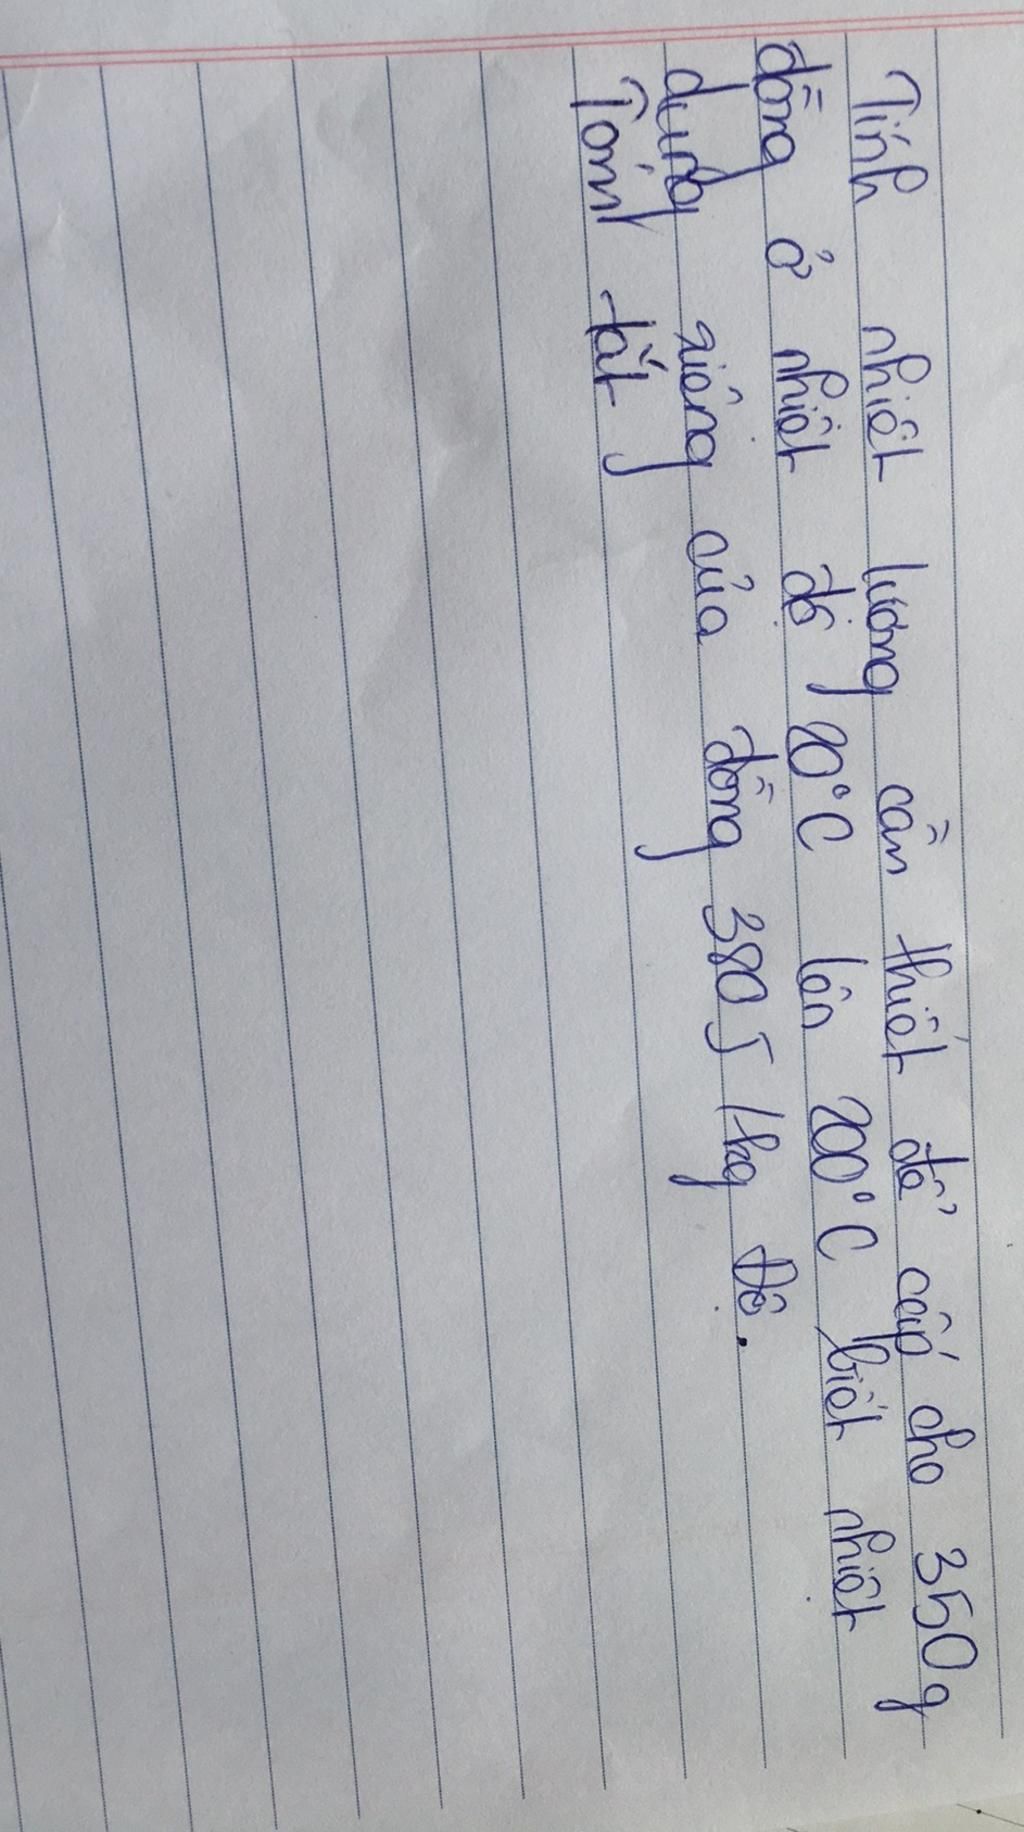 Tính nhiệt lượng cần thiết để cấp cho 350g
đồng ở nhiệt độ 20°C lên 200°C biết nhiệt
dung riêng của đồng 380J/kg Độ.
Tóm tắt